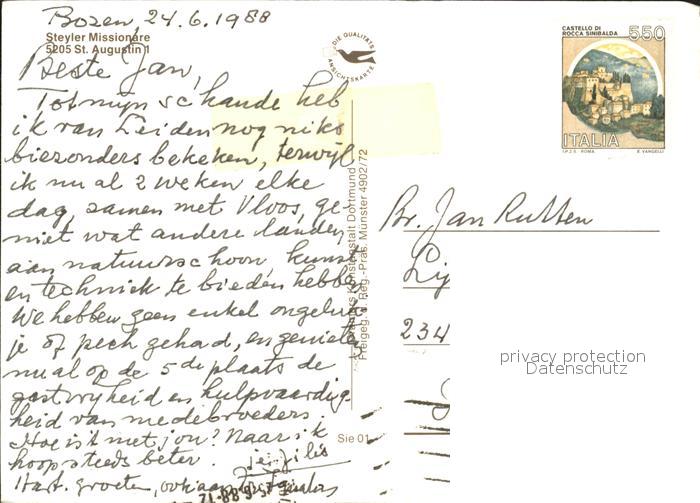 Bozen, 24.6.1988
Steyler Missionare
5205 St. Augustin 1
Beste Jan,
Tot mijn schande heb
ik van Leiden nog niks
biezonders bekeken, terwijl
ik nu al 2 weken elke
dag, samen met Vloos, ge-
niet wat andere landen
aan natuurschoon kunst
en techniek te bieden hebben
We hebben geen enkel ongeluk
je of pech gehad, en genieten
nu al op de 5de plaats de
gastvrijheid en hulpvaardig-
heid van medebroeders.
Hoe is't met jou? Naar ik
hoop steeds beter.
Hart. groeten, ook aan
DIE QUALITÄTS
ANSICHTSKARTE
Kunstanstalt Dortmund
Freigeg. d. Reg.-Präs. Münster 4902/72
Sie 01
CASTELLO DI
ROCCA SINIBALDA
550
ITALIA
I.P.Z.S. ROMA E. VANGELLI
Br. Jan Rutten
Lij
234
privacy protection
Datenschutz